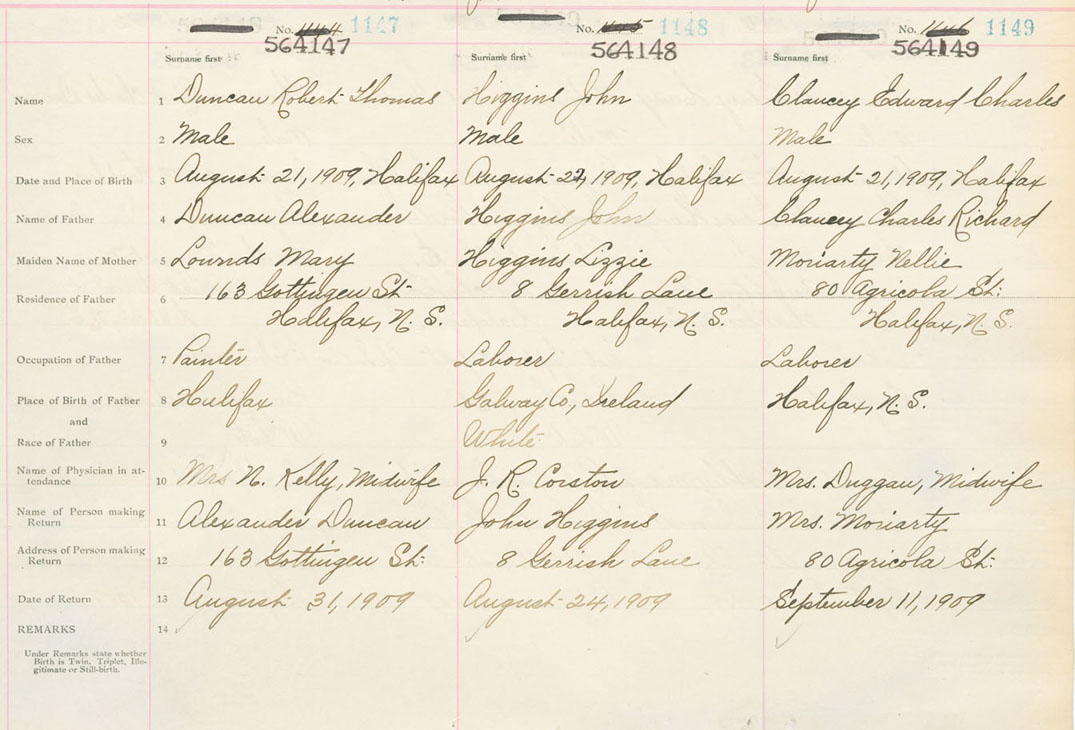 No. 1147 No. 1148 No. 1149
564147 564148 564149
Surname first Surname first Surname first
Name 1 Duncan Robert Thomas Higgins John Clancey Edward Charles
Sex 2 Male Male Male
Date and Place of Birth 3 August 21, 1909, Halifax August 22, 1909, Halifax August 21, 1909, Halifax
Name of Father 4 Duncan Alexander Higgins John Clancey Charles Richard
Maiden Name of Mother 5 Lownds Mary Higgins Lizzie Moriarty Nellie
Residence of Father 6 163 Gottingen St. 8 Gerrish Lane 80 Agricola St.
Halifax, N. S. Halifax, N. S. Halifax, N. S.
Occupation of Father 7 Painter Laborer Laborer
Place of Birth of Father 8 Halifax Galway Co., Ireland Halifax, N. S.
and
Race of Father 9 White
Name of Physician in at-
tendance 10 Mrs N. Kelly, Midwife J. R. Corston Mrs. Duggan, Midwife
Name of Person making
Return 11 Alexander Duncan John Higgins Mrs. Moriarty
Address of Person making
Return 12 163 Gottingen St. 8 Gerrish Lane 80 Agricola St.
Date of Return 13 August 31, 1909 August 24, 1909 September 11, 1909
REMARKS 14
Under Remarks state whether
Birth is Twin, Triplet, Ille-
gitimate or Still-birth.